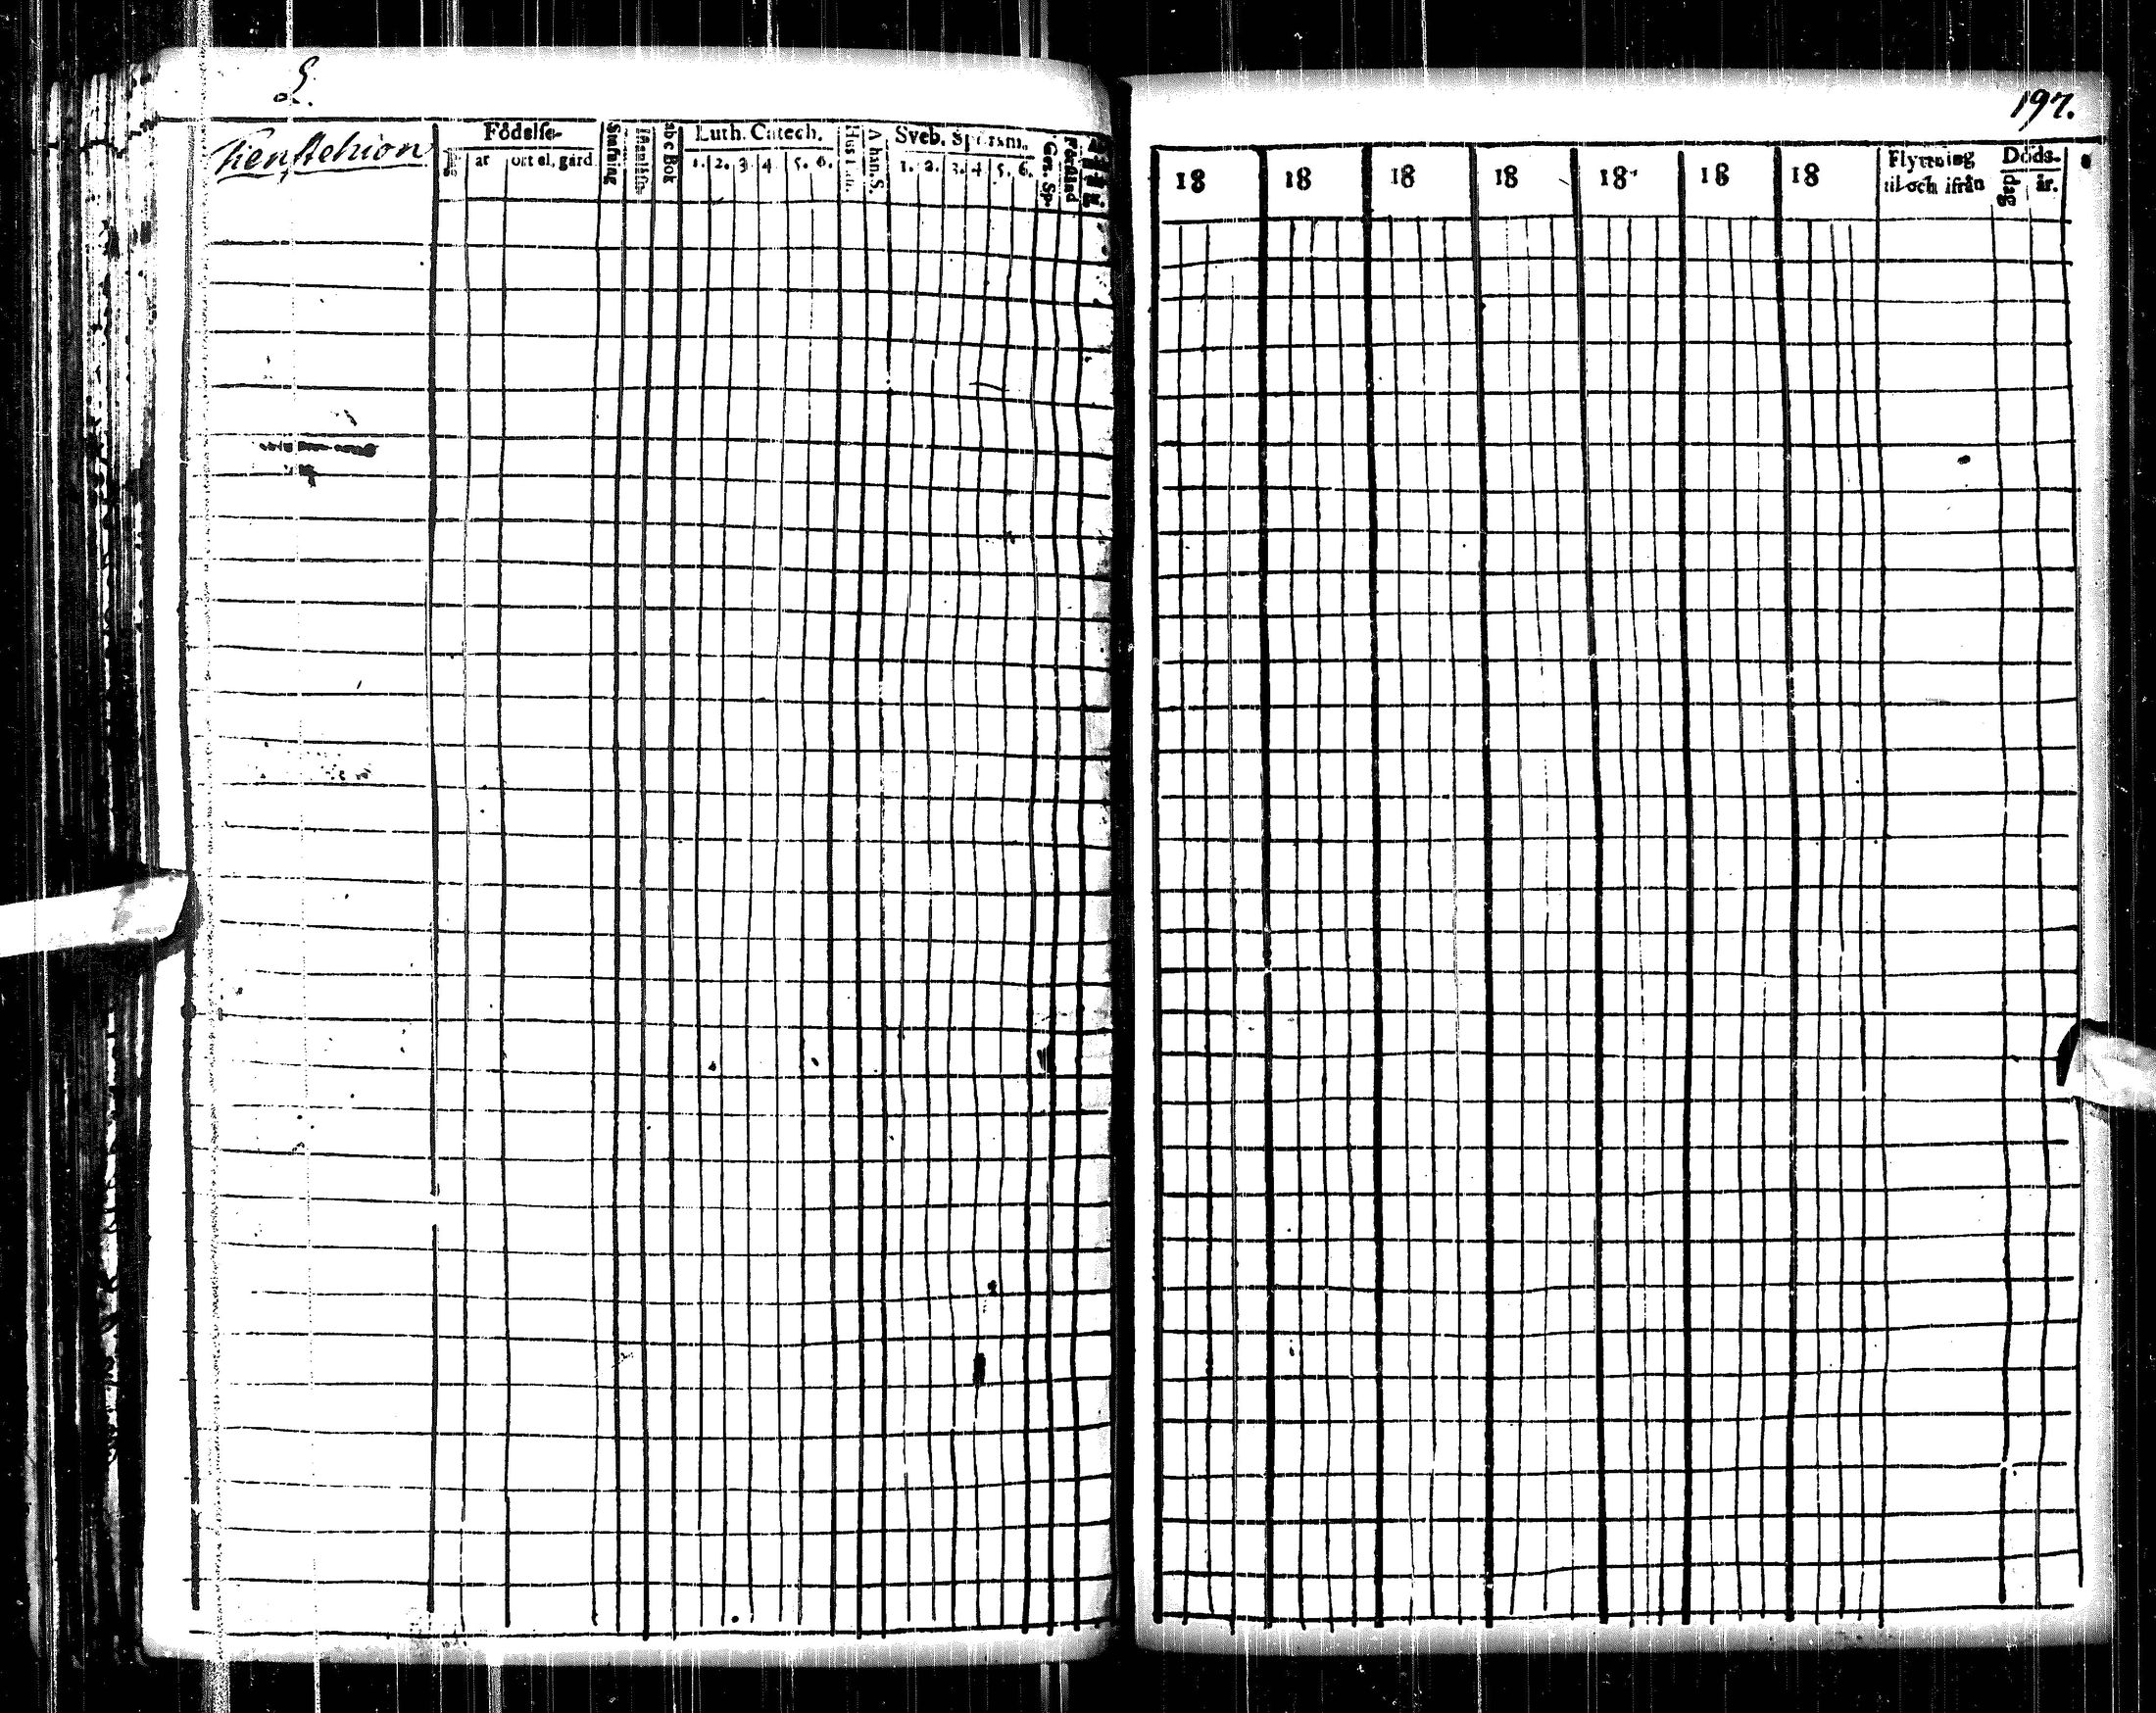 2.
197.
Födelse-
år
ort el. gård
Stafning
abc Bok
Luth. Catech.
1. 2. 3. 4. 5. 6.
Athan. S.
Sveb. Spörsm.
1. 2. 3. 4. 5. 6.
Ger. Sp.
Förstånd
18 18 18 18 18 18 18
Flyttning
til och ifrån
Döds-
dag
år.